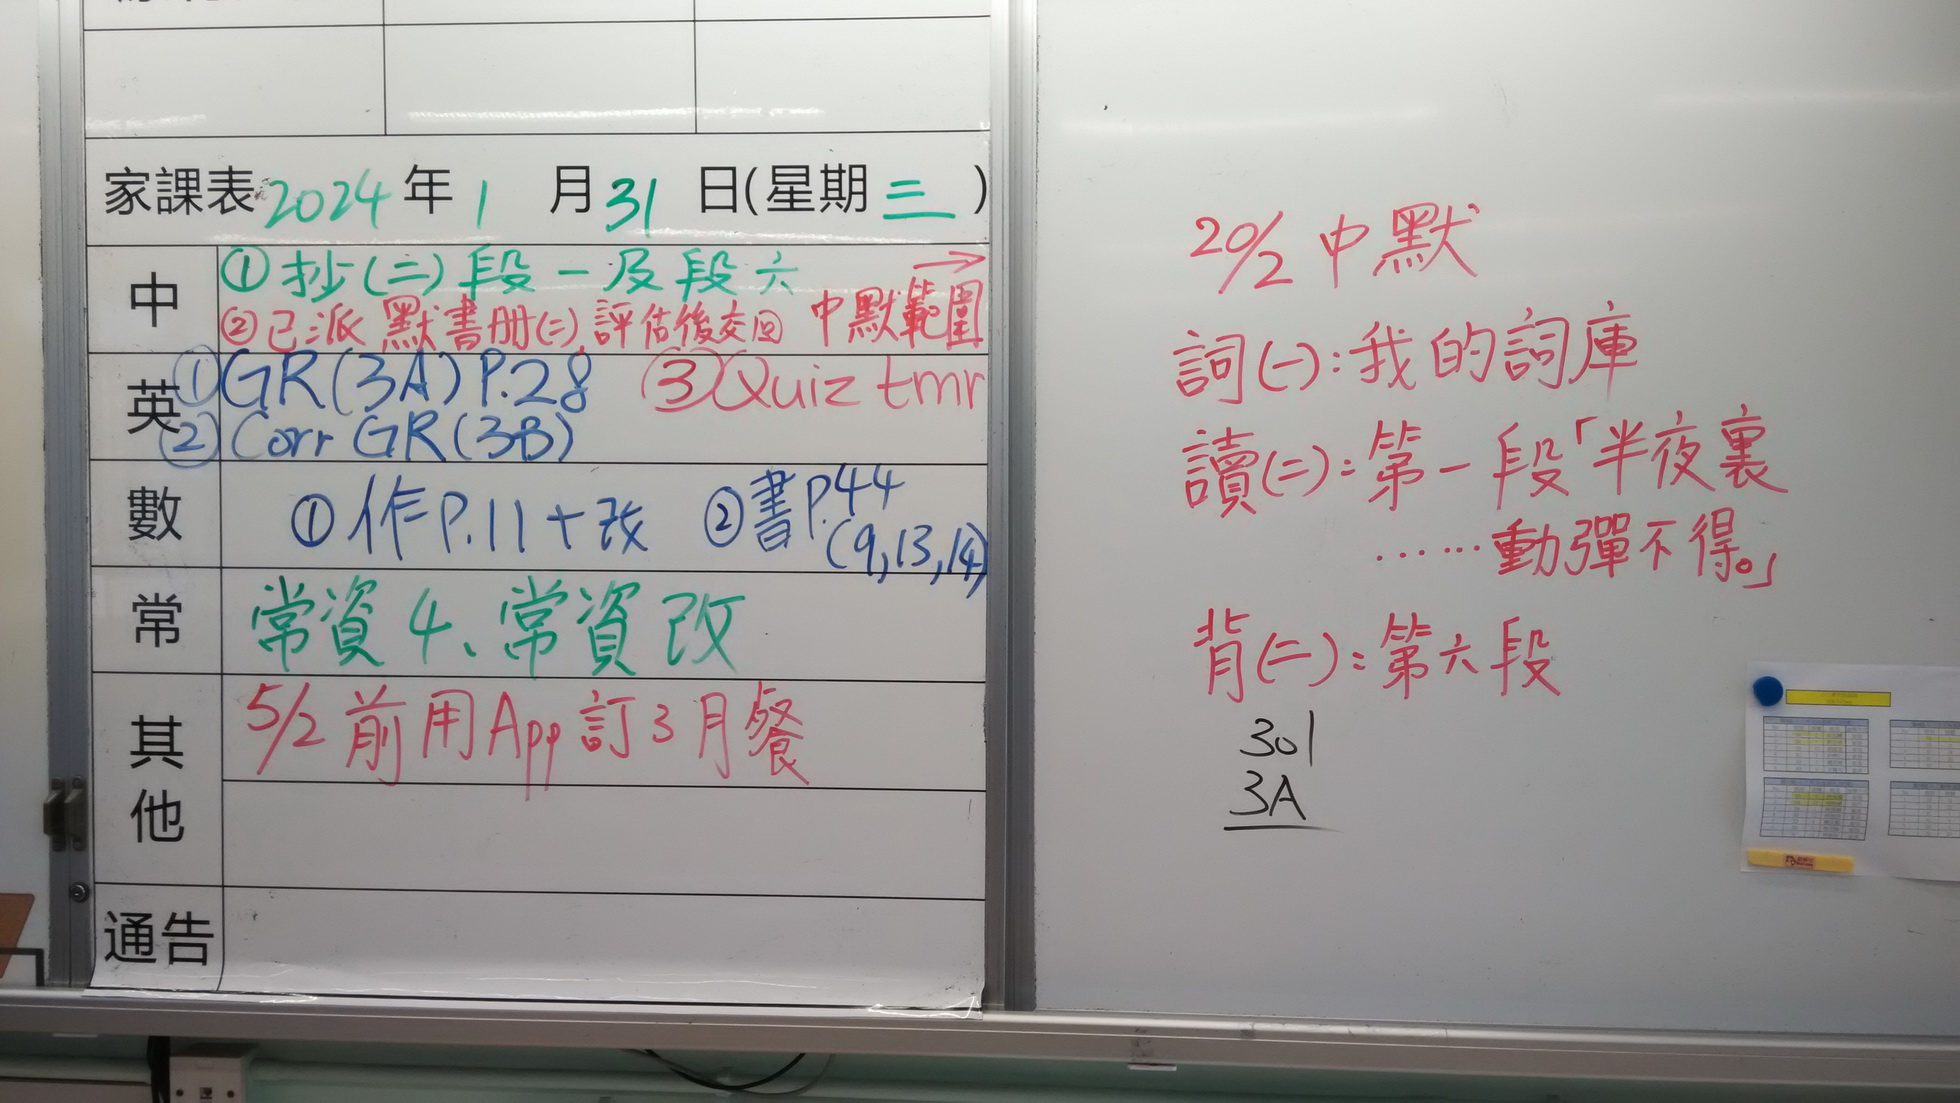 家課表 2024 年 1 月 31 日(星期 三 )
中
①抄(二)段一及段六
②已派默書冊(二),評估後交回 中默範圍 →
英
①GR(3A)P.28 ③Quiz tmr
②Corr GR(3B)
數
①作P.11+改 ②書P.44
(9,13,14)
常
常資4、常資改
其他
5/2前用App訂3月餐
通告
20/2 中默
詞(一):我的詞庫
讀(二):第一段「半夜裏
……動彈不得。」
背(二):第六段
301
3A